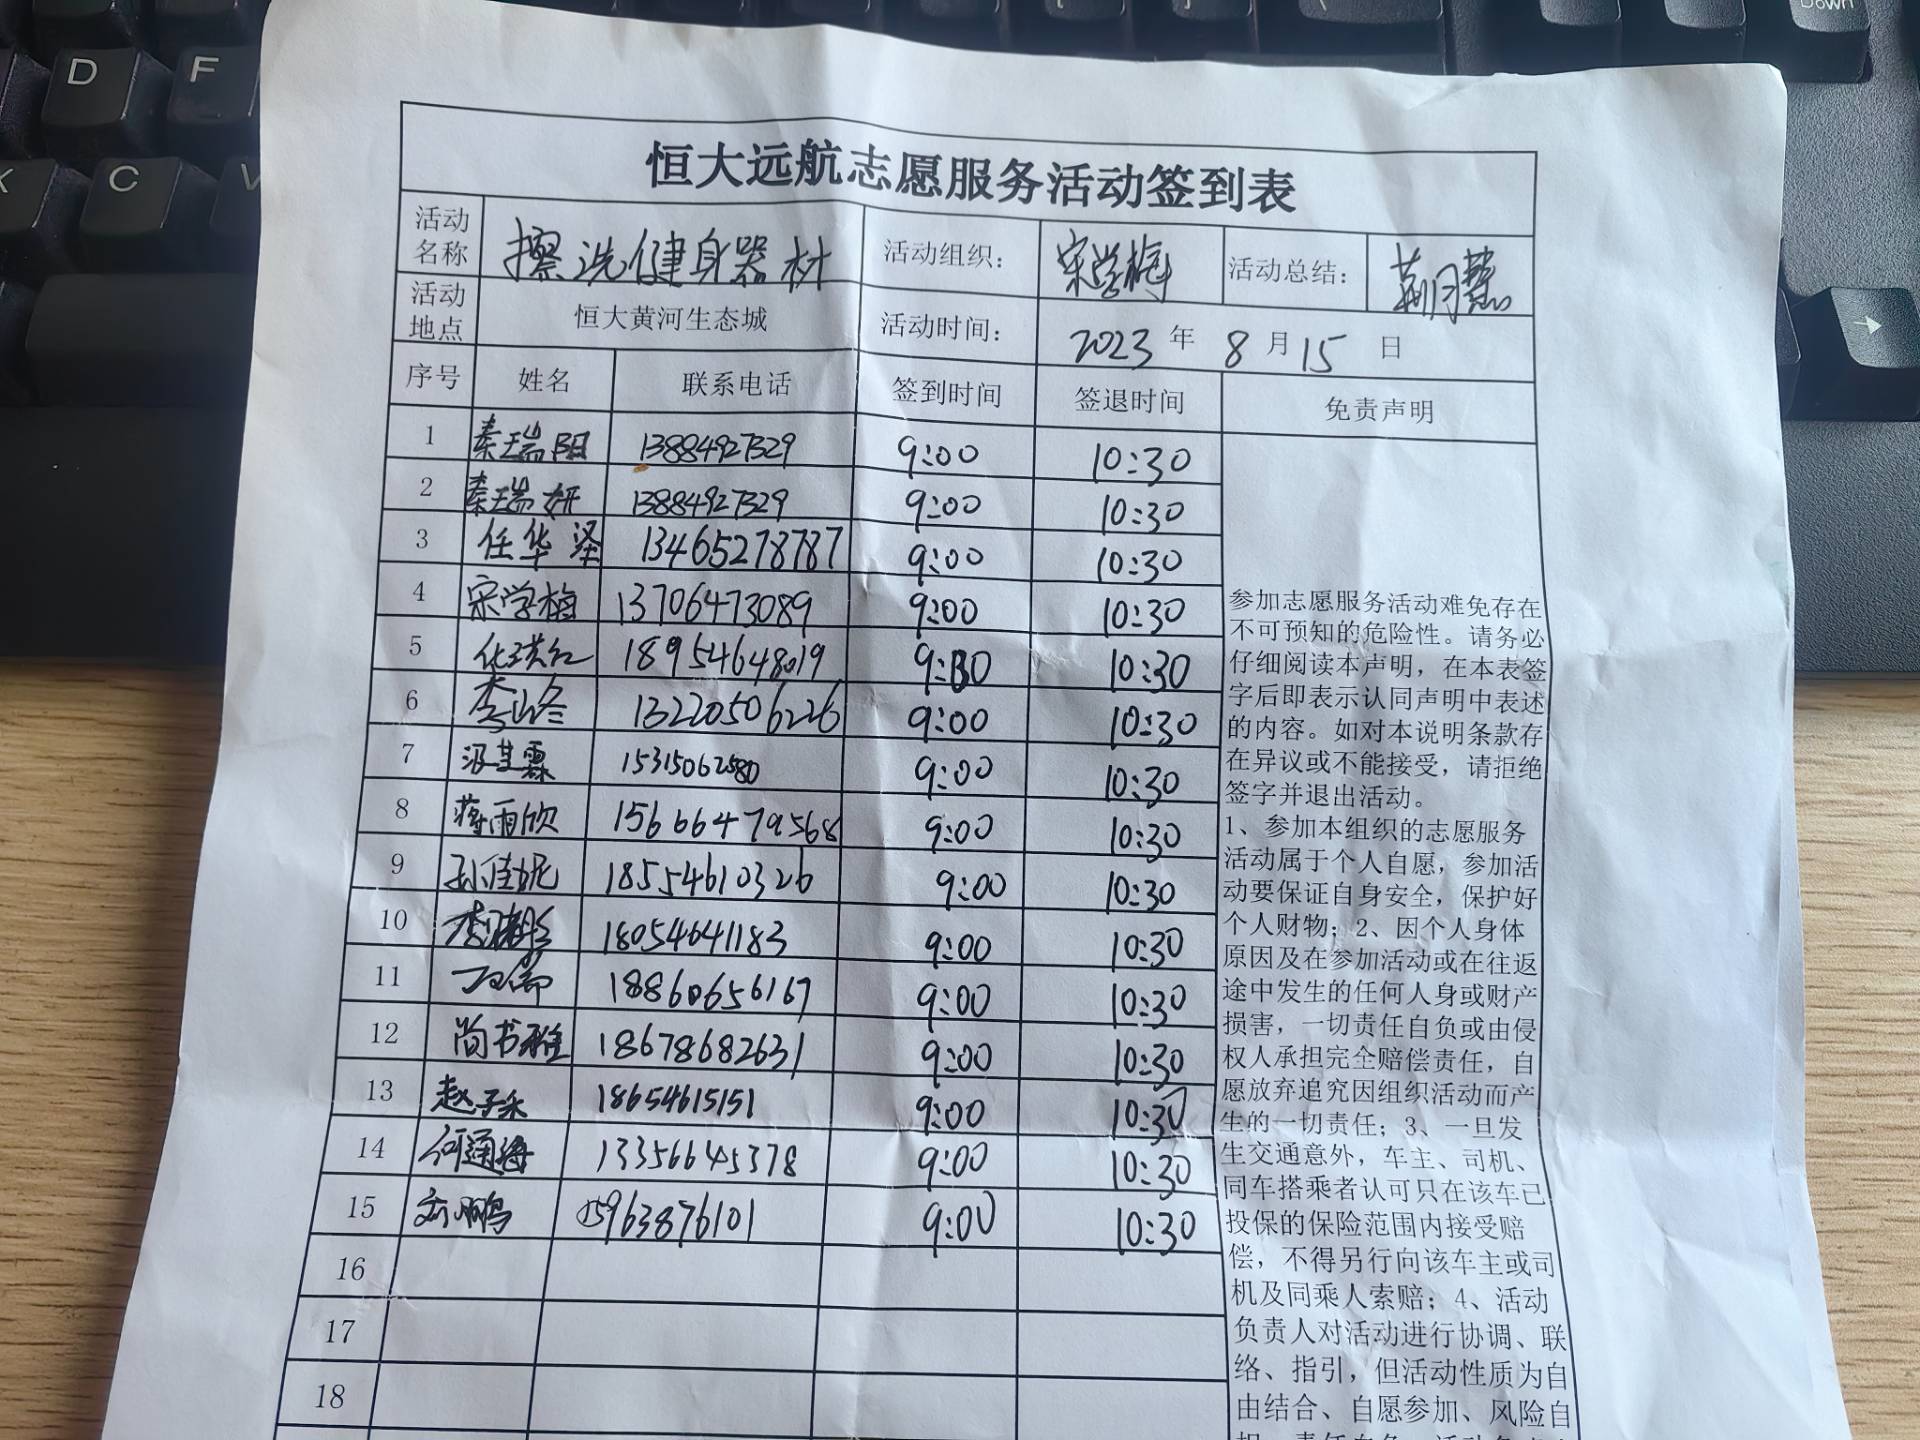 D F
K C V
Down
→
恒大远航志愿服务活动签到表
活动名称 擦洗健身器材 活动组织: 宋学梅 活动总结:
活动地点 恒大黄河生态城 活动时间: 2023 年 8 月 15 日
序号 姓名 联系电话 签到时间 签退时间 免责声明
1 秦瑞阳 13884927329 9:00 10:30
2 秦瑞妍 13884927329 9:00 10:30
3 任华泽 13465278787 9:00 10:30
4 宋学梅 13706473089 9:00 10:30
5 18954648019 10:30
6 13220506226 9:00 10:30
7 15315062580 9:00 10:30
8 蒋雨欣 15666479568 9:00 10:30
9 孙佳妮 18554610326 9:00 10:30
10 18054641183 9:00 10:30
11 18860656167 9:00 10:30
12 尚书雅 18678682631 9:00 10:30
13 赵子乐 18654615151 9:00 10:30
14 13356645378 9:00 10:30
15 刘鹏 15963876101 9:00 10:30
16
17
18
参加志愿服务活动难免存在
不可预知的危险性。请务必
仔细阅读本声明，在本表签
字后即表示认同声明中表述
的内容。如对本说明条款存
在异议或不能接受，请拒绝
签字并退出活动。
1、参加本组织的志愿服务
活动属于个人自愿，参加活
动要保证自身安全，保护好
个人财物；2、因个人身体
原因及在参加活动或在往返
途中发生的任何人身或财产
损害，一切责任自负或由侵
权人承担完全赔偿责任，自
愿放弃追究因组织活动而产
生的一切责任；3、一旦发
生交通意外，车主、司机、
同车搭乘者认可只在该车已
投保的保险范围内接受赔
偿，不得另行向该车主或司
机及同乘人索赔；4、活动
负责人对活动进行协调、联
络、指引，但活动性质为自
由结合、自愿参加、风险自